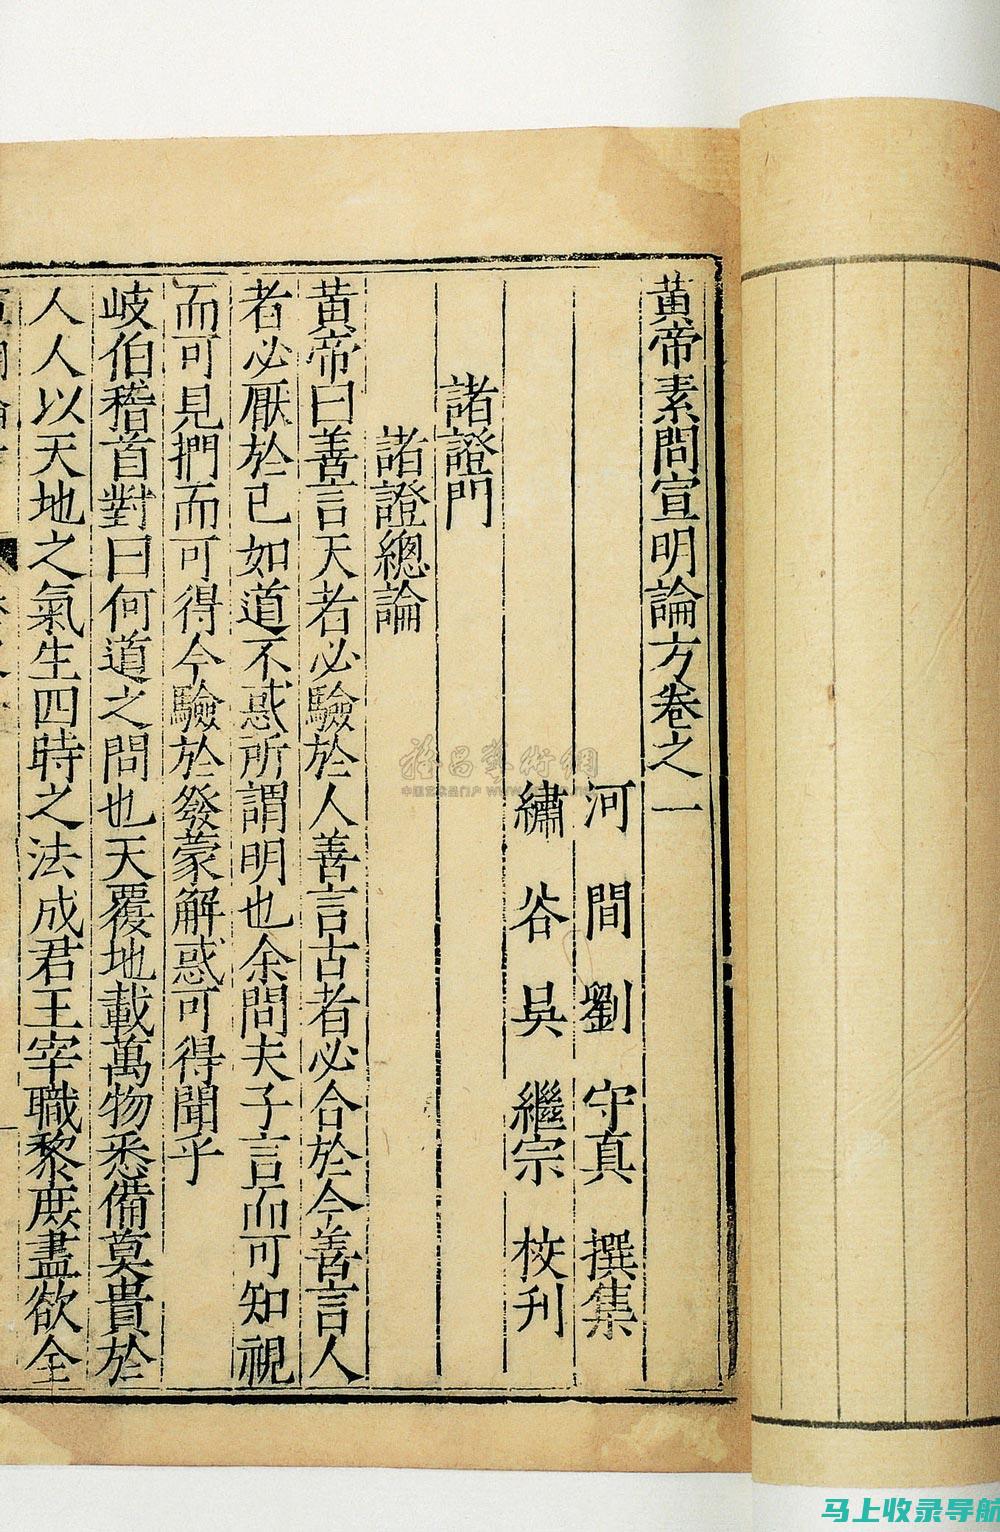 黄帝素問宣明論方卷之一
河間劉守真撰集
繡谷吳繼宗校刊
諸證門
諸證總論
黄帝曰善言天者必驗於人善言古者必合於今善言人
者必厭於已如道不惑所謂明也余問夫子言而可知視
而可見捫而可得令驗於發蒙解惑可得聞乎
岐伯稽首對曰何道之問也天覆地載萬物悉備莫貴於
人人以天地之氣生四時之法成君王宰職黎庶盡欲全
中国艺术品门户
马上收录导航